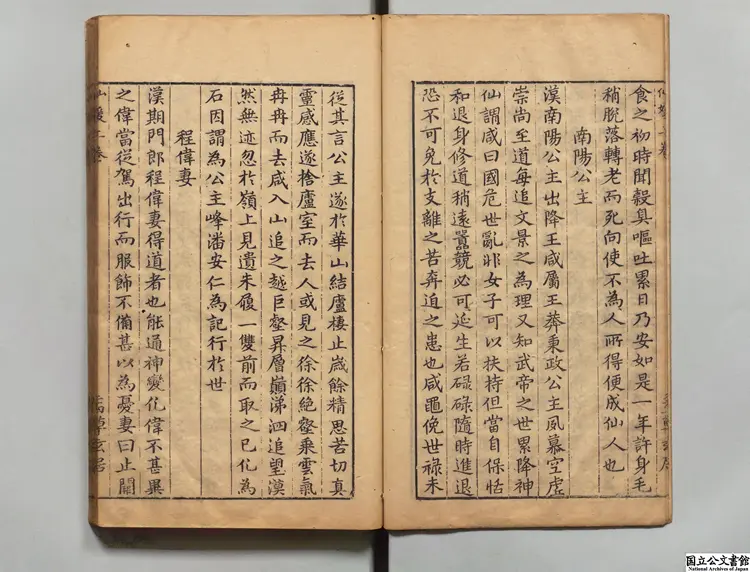 食之初時聞穀臭嘔吐累日乃安如是一年許身毛
稍脫落轉老而死向使不為人所得便成仙人也
南陽公主
漢南陽公主出降王咸屬王莽秉政公主夙慕空虛
崇尚至道每追文景之為理又知武帝之世累降神
仙謂咸曰國危世亂非女子可以扶持但當自保恬
和退身修道稍遠囂競必可延生若碌碌隨時進退
恐不可免於支離之苦奔迫之患也咸黽俛世祿未
從其言公主遂於華山結廬棲止歲餘精思苦切真
靈感應遂捨廬室而去人或見之徐徐絶壑乘雲氣
冉冉而去咸入山追之越巨壑昇層巔涕泗追望漠
然無迹忽於嶺上見遺朱履一雙前而取之已化為
石因謂為公主峰潘安仁為記行於世
程偉妻
漢期門郎程偉妻得道者也能通神變化偉不甚異
之偉當從駕出行而服飾不備甚以為憂妻曰止闕
国立公文書館
National Archives of Japan